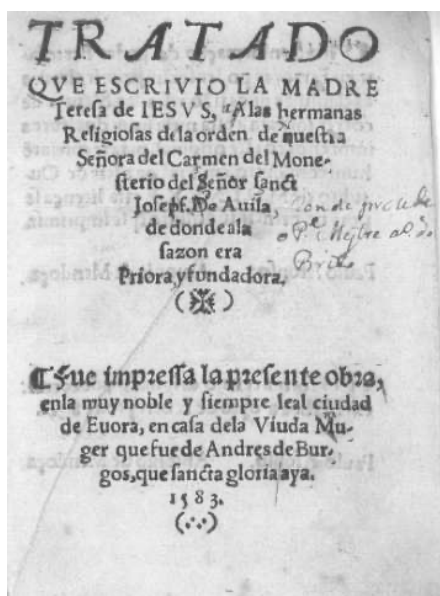 TRATADO
QVE ESCRIVIO LA MADRE
Teresa de IESVS, A las hermanas
Religiosas dela orden de nuestra
Señora del Carmen del Mone-
sterio del Señor sanct
Joseph. De Auila,
de donde ala
sazon era
Priora y fundadora,
Fue impressa la presente obra,
enla muy noble y siempre leal ciudad
de Euora, en casa dela Viuda Mu-
ger que fue de Andres de Bur-
gos, que sancta gloria aya.
1583.